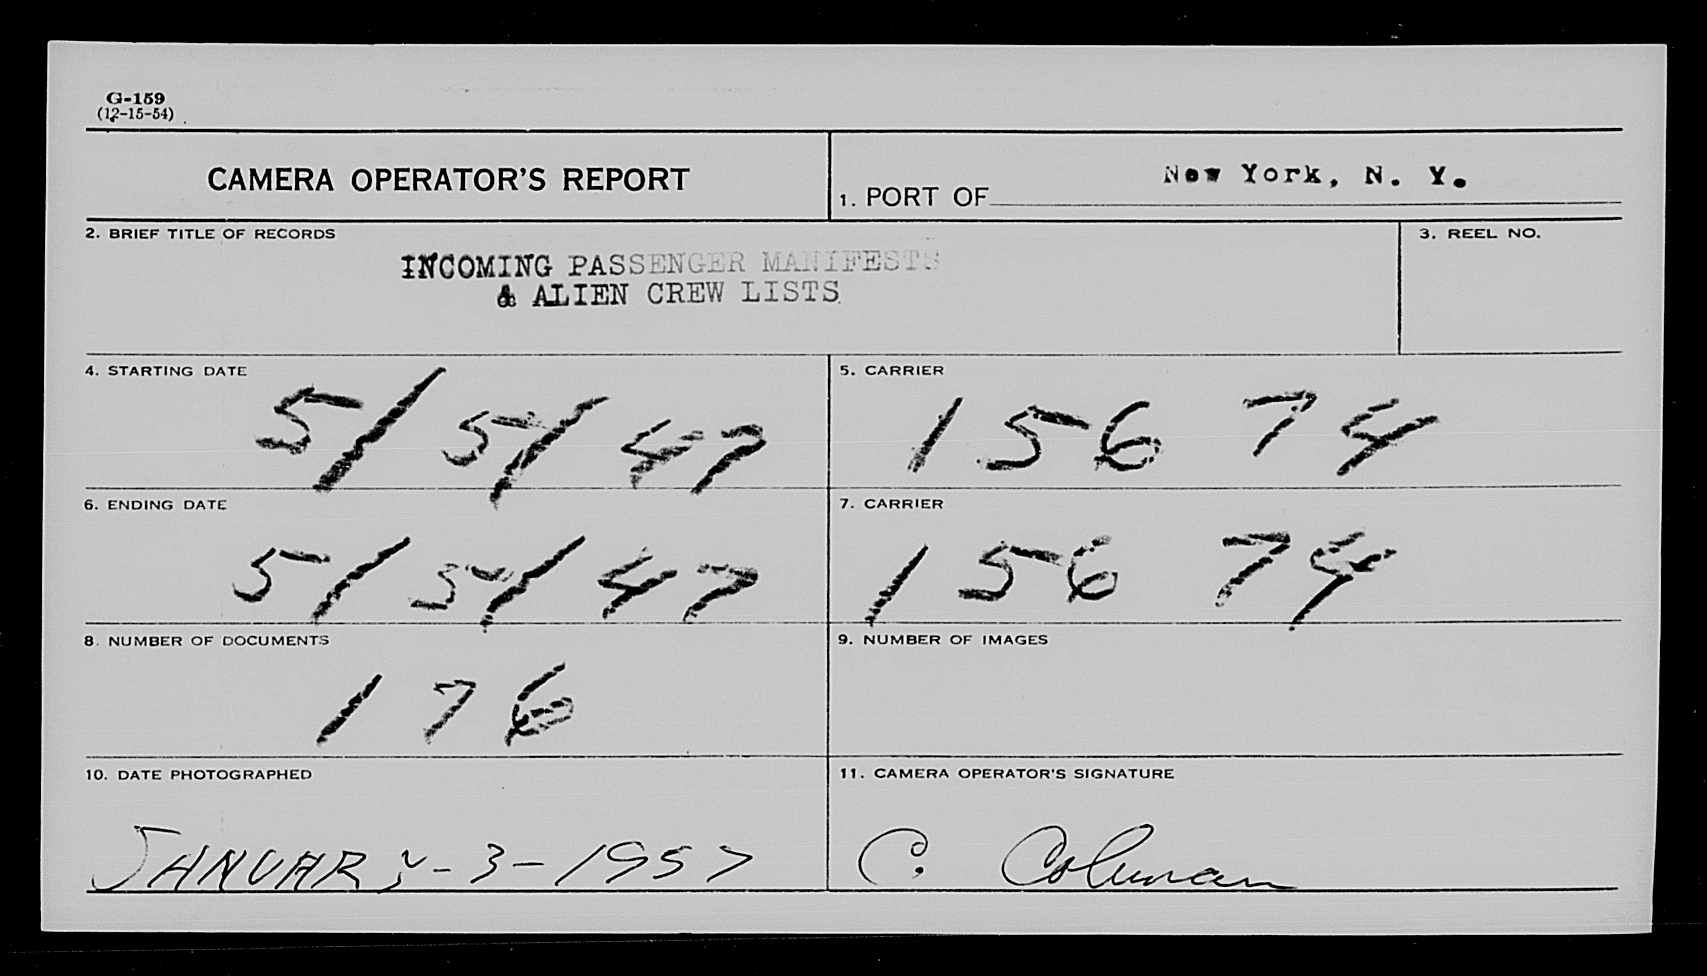 G-159
(12-15-54)
CAMERA OPERATOR'S REPORT
1. PORT OF New York, N. Y.
2. BRIEF TITLE OF RECORDS
INCOMING PASSENGER MANIFESTS
& ALIEN CREW LISTS
3. REEL NO.
4. STARTING DATE
5/5/47
5. CARRIER
156 74
6. ENDING DATE
5/5/47
7. CARRIER
156 74
8. NUMBER OF DOCUMENTS
176
9. NUMBER OF IMAGES
10. DATE PHOTOGRAPHED
JANUARY-3-1957
11. CAMERA OPERATOR'S SIGNATURE
C. Coleman